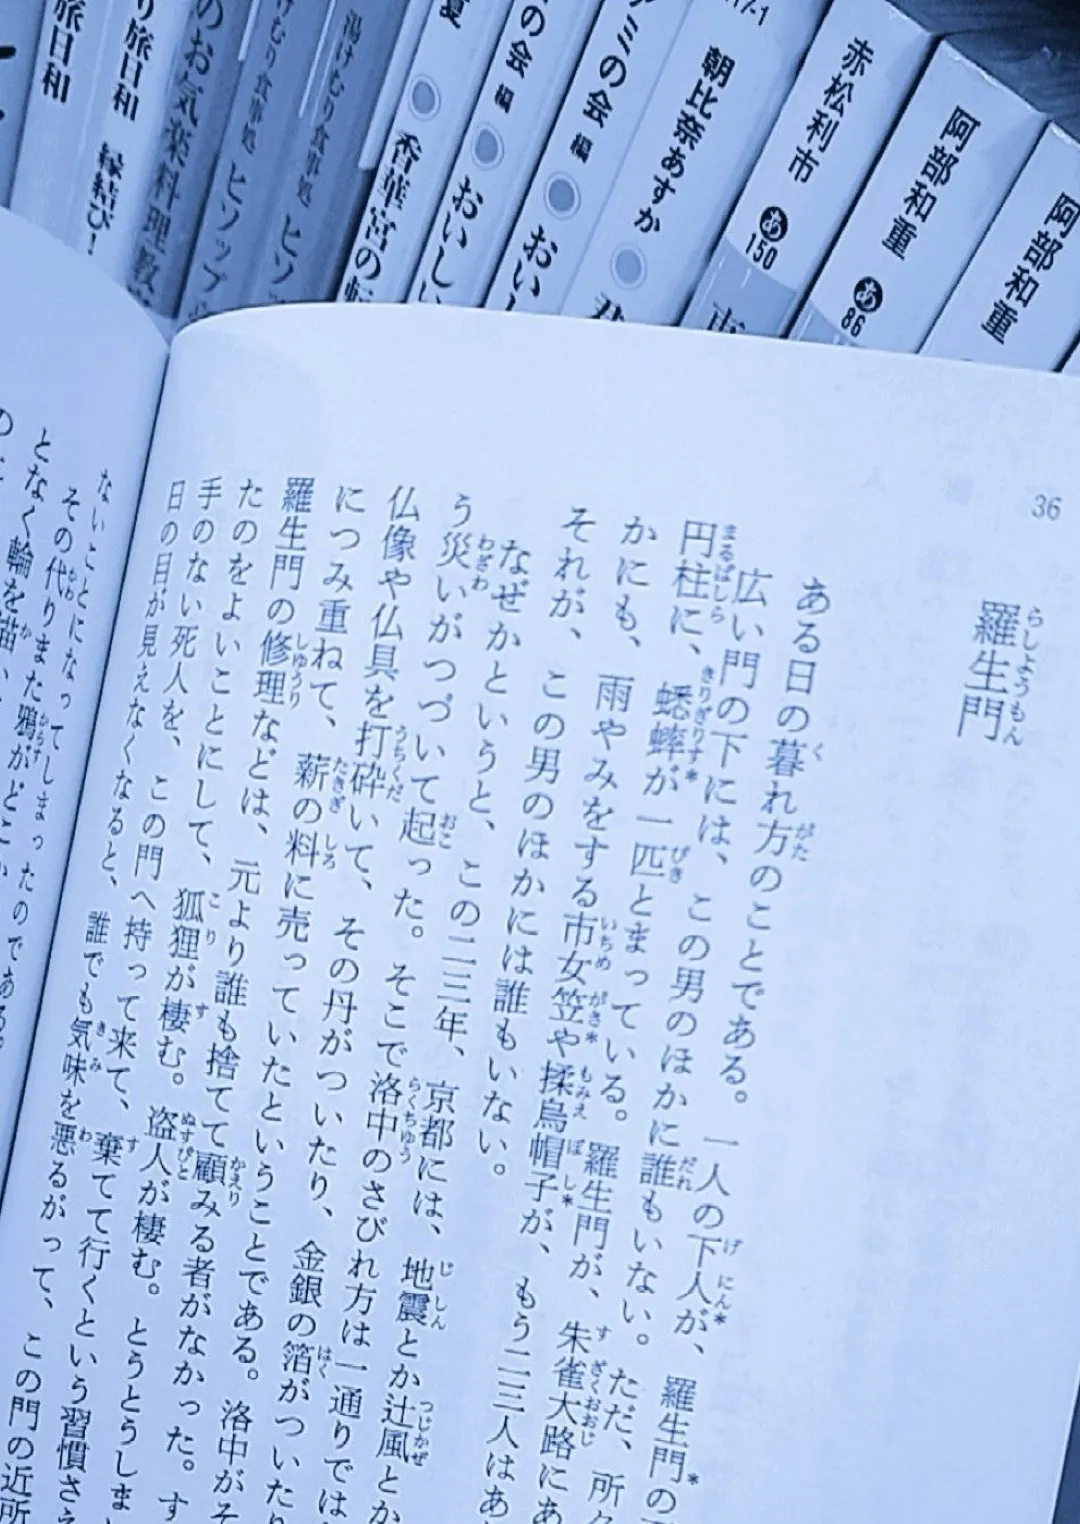 り旅日和 縁結び!
旅日和
のお気楽料理教
けむり食事処 ヒソップ
湯けむり食事処 ヒソ
夏
香華宮の転
の会 編
おいしい
アミの会 編
おい
朝比奈あすか
君
17-1
赤松利市
あ
150
阿部和重
あ
86
阿部和重
36
羅生門
らしょうもん
ある日の暮れ方のことである。一人の下人が、羅生門の
広い門の下には、この男のほかに誰もいない。ただ、所々
円柱に、蟋蟀が一匹とまっている。羅生門が、朱雀大路にあ
かにも、雨やみをする市女笠や揉烏帽子が、もう二三人はあ
それが、この男のほかには誰もいない。
なぜかというと、この二三年、京都には、地震とか辻風とか
う災いがつづいて起った。そこで洛中のさびれ方は一通りでは
仏像や仏具を打砕いて、その丹がついたり、金銀の箔がついたり
につみ重ねて、薪の料に売っていたということである。洛中がそ
羅生門の修理などは、元より誰も捨てて顧みる者がなかった。す
たのをよいことにして、狐狸が棲む。盗人が棲む。とうとうしま
手のない死人を、この門へ持って来て、棄てて行くという習慣さえ
日の目が見えなくなると、誰でも気味を悪るがって、この門の近所
ないことになってしまったのである。
その代りまた鴉がどこか
となく輪を描い